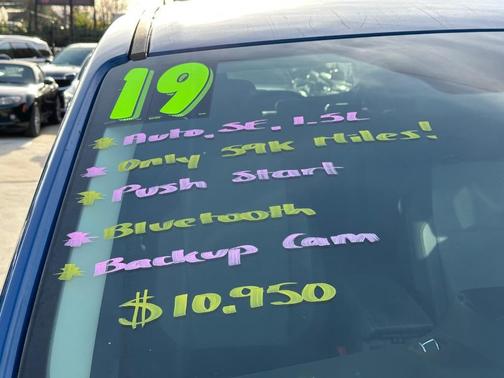 19
* Auto, SE, 1.5L
* Only 59K Miles!
* Push Start
* Bluetooth
* Backup Cam
$10,950